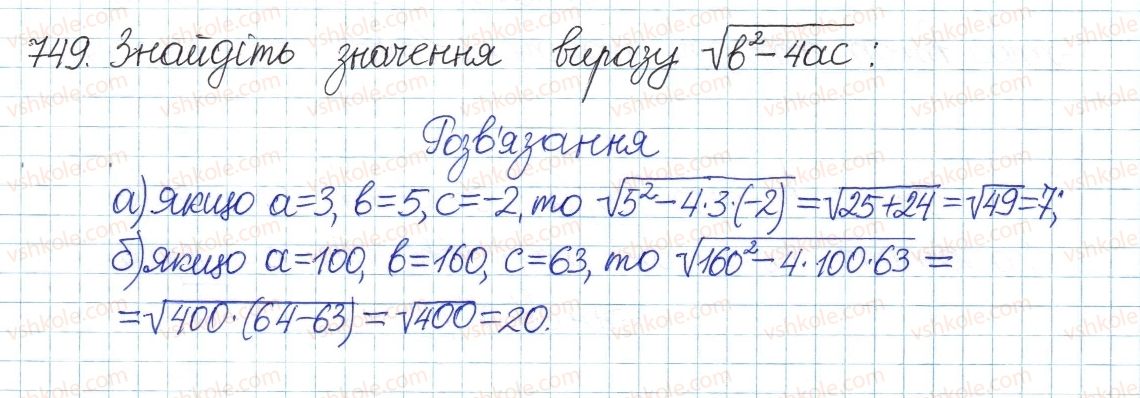 749. Знайдіть значення виразу √(в²-4ас):
Розв'язання
а) якщо а=3, в=5, с=-2, то √(5²-4·3·(-2))=√(25+24)=√49=7;
б) якщо а=100, в=160, с=63, то √(160²-4·100·63)=
=√(400·(64-63))=√400=20.